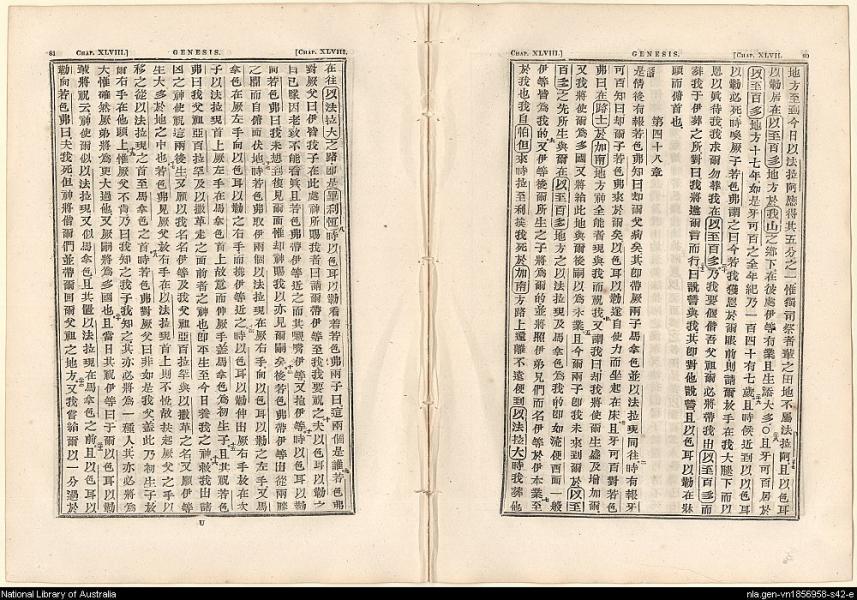 CHAP. XLVIII.] GENESIS. [CHAP. XLVII. 80
地方至到今日以法拉阿應得其五分之一惟獨司祭者輩之田地不屬法拉阿且以色耳
以勒居在以至百多地方於我山之鄉下在彼處伊等有業且生諸大多〇且牙可百居於
以至百多地方十七年如是牙可百之全年紀乃一百四十有七歲且時候近到以以色耳
以勒必死時喚厥子若色弗謂之曰今若我獲恩於爾眼前則請爾放手在我大腿下而以
恩以真待我我求爾勿葬我在以至百多乃我要偃偕吾父祖爾必將帶我出以至百多而
葬我于伊葬之所對曰我將遵爾言而行曰誓與我其卽對他誓且以色耳以勒在牀
頭而俯首也
第四十八章
是情後有報若色弗知曰卻爾父病矣其卽帶厥兩子馬拿色並以法拉現同往時有報牙
可百知曰卻爾子若色弗來於爾矣以色耳以勒遂自使力而坐起在床且牙可百對若色
弗曰在路士於加南地方神全能者現與我而祝我又謂我曰卻我將使爾生盛及增加爾
又我將使爾爲多國又將給此地與爾後嗣以爲永業且今爾兩子卽我未來到爾於以至
百多之先所生與爾在以至百多地方之以法拉現及馬拿色爲我的卽如流便西面一般
伊等皆爲我的又伊等後爾所生之子將爲爾的並將照伊弟兄們而名伊等於伊本業至
於我也我自怕但來時拉至利徒我死於加南方路上還離不遠便到以法拉大時我葬他
81 CHAP. XLVIII.] GENESIS. [CHAP. XLVIII.
在往以法拉大之路卽是畢利恆時以色耳以勒看着若色弗兩子曰這兩個是誰若色弗
對厥父曰伊皆我子在此處神所賜我者曰請爾帶伊等至我我要祝之夫以色耳以勒
目已矇因老致不能看眞且若色弗帶伊等近之而其親嘴伊等又抱伊等時以色耳以勒
向若色弗曰我未想到復見爾面惟卻神賜我以亦見爾嗣矣後若色弗帶伊等出從兩膝
之間而自俯面伏地時若色弗取伊兩個以法拉現在厥右手向以色耳以勒之左手又馬
拿色在厥左手向以色耳以勒之右手而攜伊等近之時以色耳以勒伸出厥右手放在次
子以法拉現首上厥左手在馬拿色首上故意而伸厥手蓋馬拿色爲初生子且其祝若色
弗曰我父祖亞百拉罕及以撒革走之面前者之神也卽平生至今日養我之神救我出諸
凶之神使祝這兩後生又願以我名名伊等及我父祖亞百拉罕與以撒革之名又願伊等
生大多於地之中也若色弗見厥父放右手在以法拉現首上則不悅故扶起厥父之手以
移之從以法拉現之首至馬拿色之首時若色弗對厥父曰非如是我父蓋此乃初生子放
爾右手在他頭上惟厥父不肯乃曰我知之我子我知之其亦必將爲一種人其亦必將爲
大惟確然厥弟將爲更大過他又厥嗣將爲多國也且當日其祝伊等曰于爾以色耳以勒
將祝云神使爾似以法拉現又似馬拿色且其置以法拉現在馬拿色之前且以色耳以
勒向若色弗曰夫我死但神將偕爾們並帶爾回爾父祖之地方又我嘗給爾以一分過於
U
National Library of Australia
nla.gen-vn1856958-s42-e